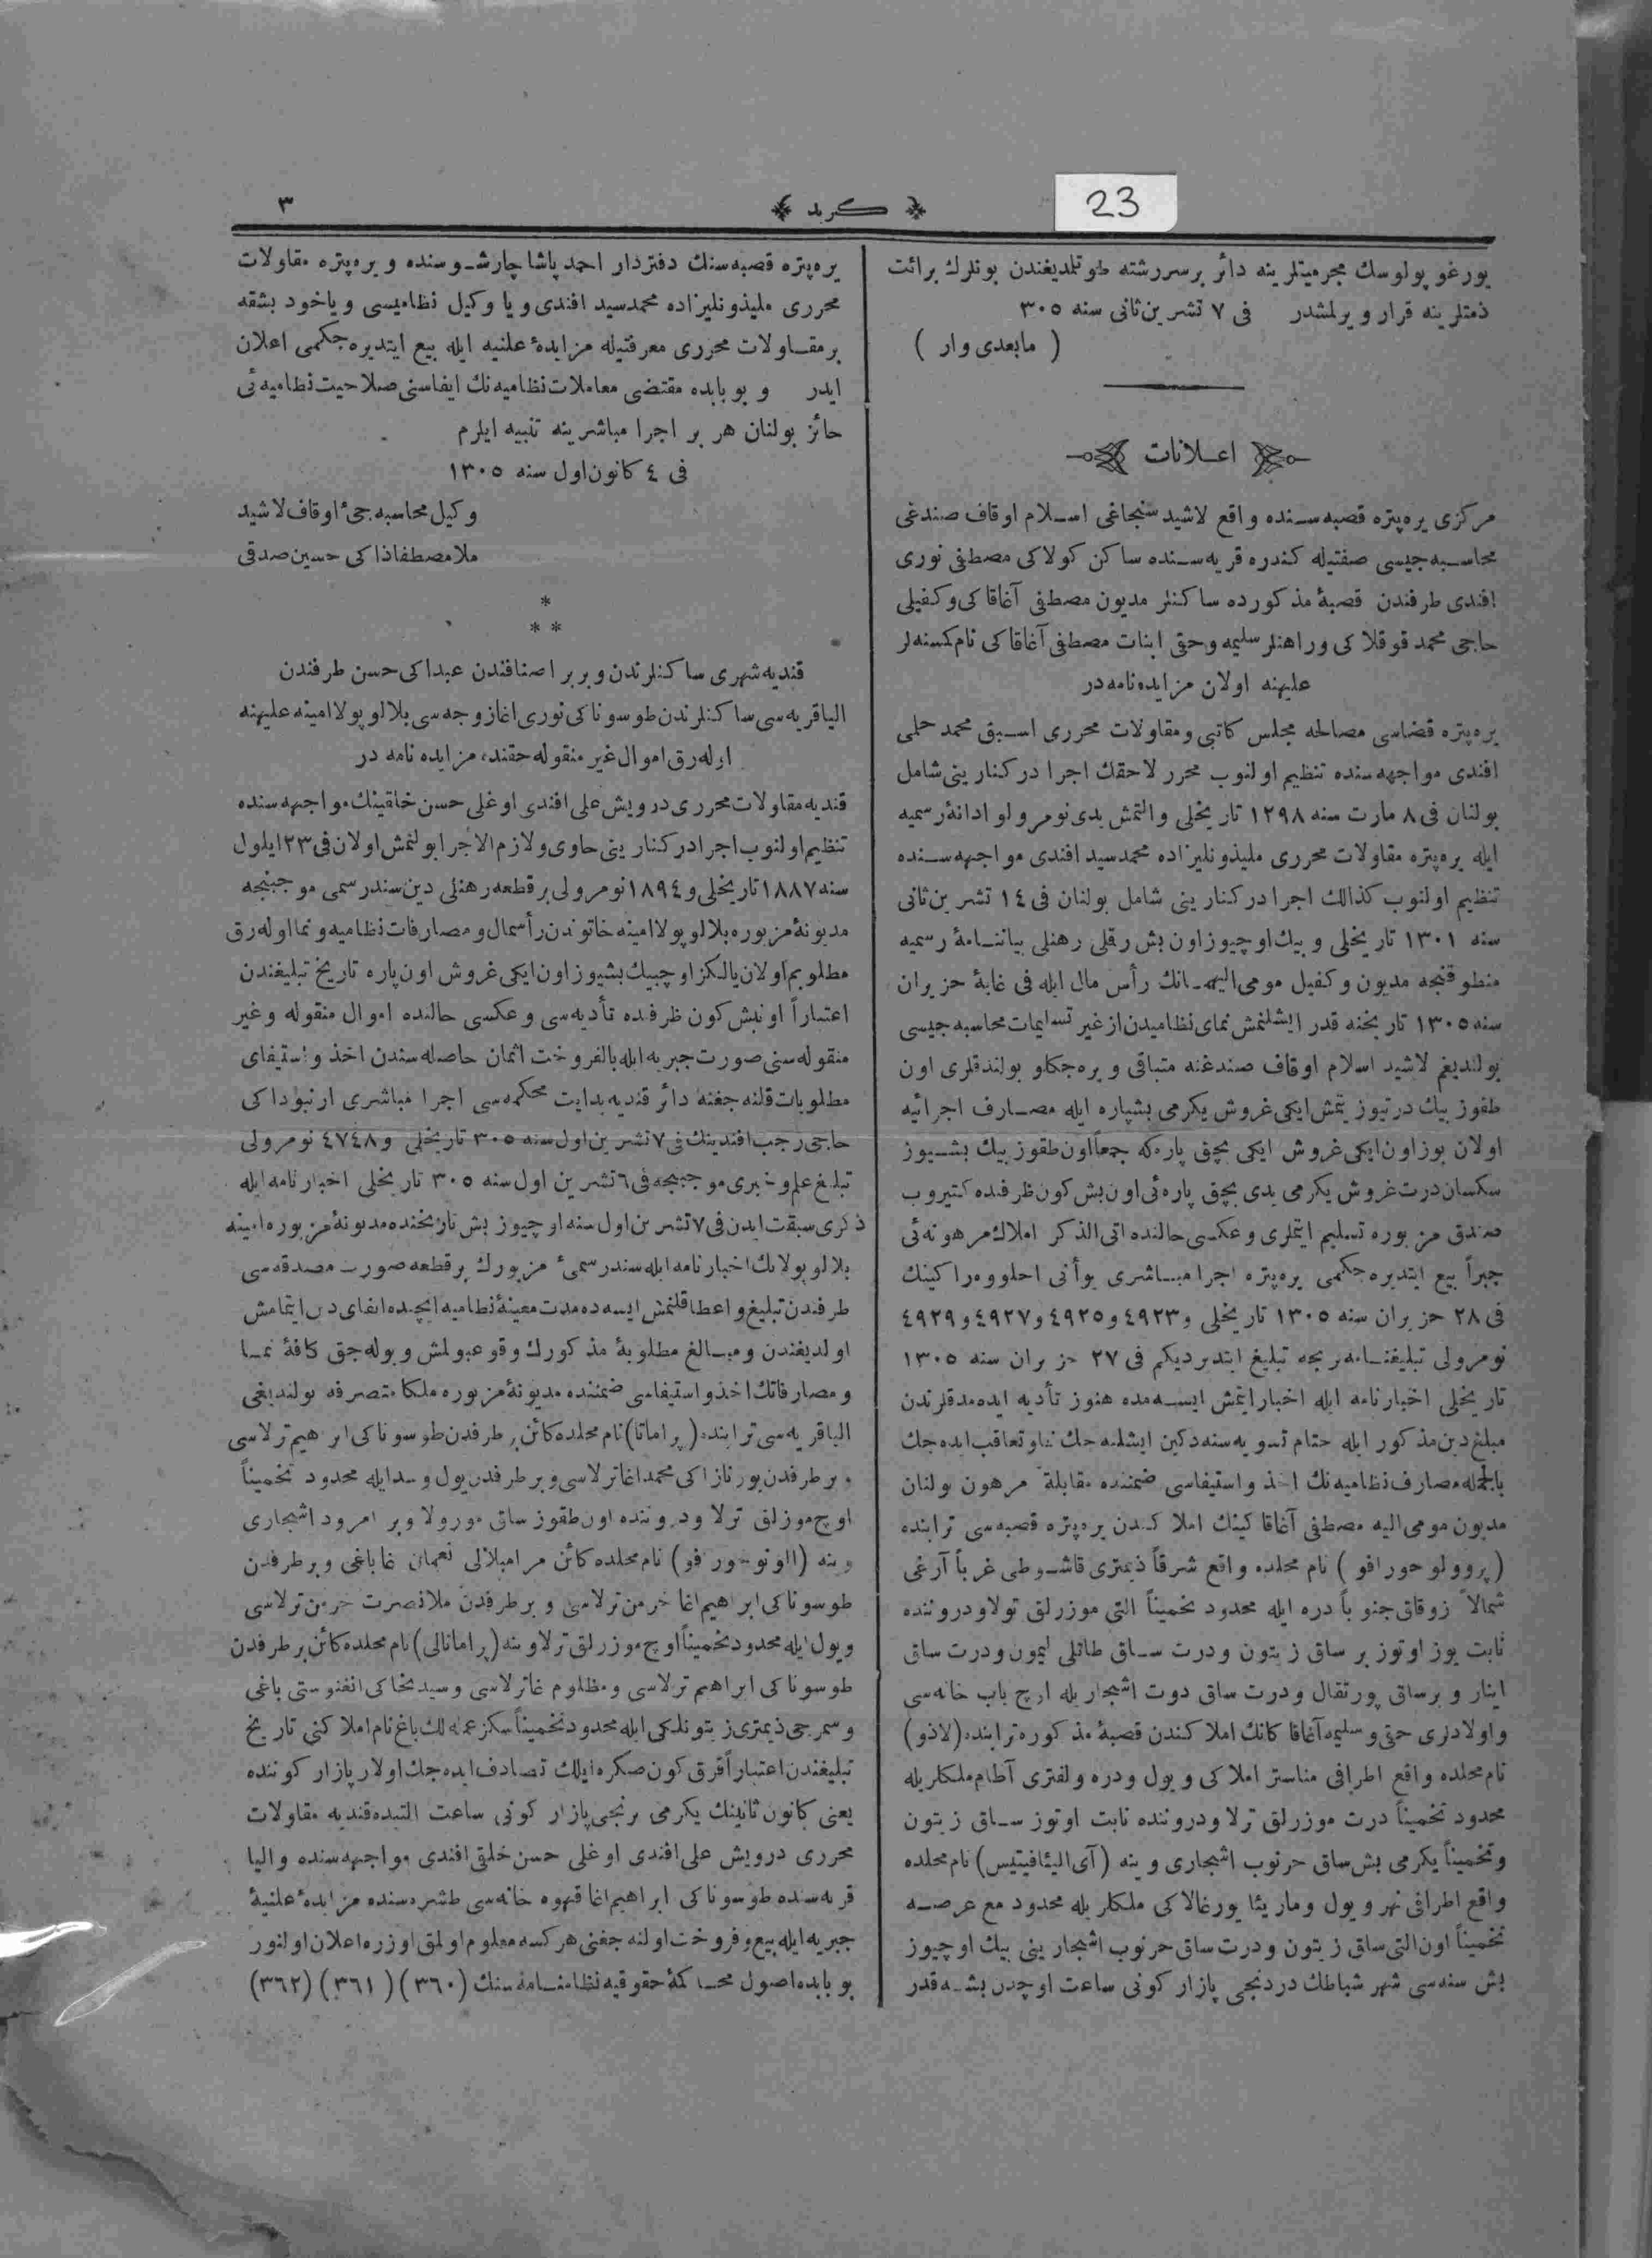 23
﴿ كريد ﴾
٣
يورغو پولوسك مجرميتلرينه دائر برسررشته طوتلديغندن بونلرك برائت
ذمتلرينه قرار ويرلمشدر في ٧ تشرين ثانى سنه ٣٠٥
( مابعدى وار )
اعلانات
مركزى يره‌پتره قصبه‌سنده واقع لاشيد سنجاغى اسلام اوقاف صندغى
محاسبه‌جيسى صفتيله كندره قريه‌سنده ساكن كولاكى مصطفى نورى
افندى طرفندن قصبهٔ مذكورده ساكنلر مديون مصطفى آغاقاكى وكفيلى
حاجى محمد قوقلاكى وراهنلر سليمه وحقى ابنات مصطفى آغاقاكى نام كمسنه‌لر
عليهنه اولان مزايده‌نامه‌در
يره‌پتره قضاسى مصالحه مجلس كاتبى ومقاولات محررى اسبق محمد حلمى
افندى مواجهه‌سنده تنظيم اولنوب محرر لاحقك اجرا دركنارينى شامل
بولنان فى ٨ مارت سنه ١٢٩٨ تاريخلى والتمش يدى نومرولو ادانهٔ رسميه
ايله يره‌پتره مقاولات محررى مليذونليزاده محمدسيد افندى مواجهه‌سنده
تنظيم اولنوب كذالك اجرا دركنارينى شامل بولنان فى ١٤ تشرين ثانى
سنه ١٣٠١ تاريخلى و بيك اوچيوز اون بش رقملى رهنلى بياننامهٔ رسميه
منطوقنجه مديون وكفيل مومى اليهمانك رأس مال ايله فى غايهٔ حزيران
سنه ١٣٠٥ تاريخنه قدر ايشلنمش نماى نظاميدن ازغير تسليمات محاسبه‌جيسى
بولنديغم لاشيد اسلام اوقاف صندغنه متباقى ويره‌جكلو بولندقلرى اون
طقوز بيك درتيوز يتمش ايكى غروش يكرمى بشپاره ايله مصارف اجرائيه
اولان يوز اون ايكى غروش ايكى بچق پاره‌كه جمعاً اون طقوز بيك بشيوز
سكسان درت غروش يكرمى يدى بچق پاره‌ئى اون بش كون ظرفنده كتيروب
صندق مزبوره تسليم ايتملرى وعكسى حالنده اتى الذكر املاك مرهونه‌ئى
جبراً بيع ايتديره‌جكمى يره‌پتره اجرا مباشرى يوأنى احلووه‌راكينك
فى ٢٨ حزيران سنه ١٣٠٥ تاريخلى و ٤٩٢٣ و ٤٩٢٥ و ٤٩٢٧ و ٤٩٢٩
نومرولى تبليغنامه‌لريجه تبليغ ايتديرديكم فى ٢٧ حزيران سنه ١٣٠٥
تاريخلى اخبارنامه ايله اخبار ايتمش ايسه‌مده هنوز تأديه ايده‌مدقلرندن
مبلغ دين مذكور ايله ختام تسويه‌سنه‌دكين ايشليه‌جك نما وتعاقب ايده‌جك
بالجمله مصارف نظاميه‌نك اخذ واستيفاسى ضمننده مقابلةً مرهون بولنان
مديون مومى اليه مصطفى آغاقاكينك املاكندن يره‌پتره قصبه‌سى ترابنده
(پروولو حورافو) نام محلده واقع شرقاً ذيمترى قاشوطى غرباً آرغى
شمالاً زوقاق جنوباً دره ايله محدود تخميناً التى موزرلق تولا ودروننده
ثابت يوز اوتوز بر ساق زيتون ودرت ساق طاتلى ليمون ودرت ساق
اينار و برساق پورتقال ودرت ساق دوت اشجاريله اوچ باب خانه‌سى
واولادلرى حقى وسليمه آغاقاكانك املاكندن قصبهٔ مذكوره ترابنده (لاذو)
نام محلده واقع اطرافى مناستر املاكى و يول ودره ولفترى آطام ملكلريله
محدود تخميناً درت موزرلق ترلا ودروننده ثابت اوتوز ساق زيتون
وتخميناً يكرمى بش ساق حرنوب اشجارى وينه (آى اليثافيتيس) نام محلده
واقع اطرافى نهر و يول وماريثا يورغالاكى ملكلريله محدود مع عرصه
تخميناً اون التى ساق زيتون ودرت ساق حرنوب اشجارينى بيك اوچيوز
بش سنه‌سى شهر شباطك دردنجى پازار كونى ساعت اوچدن بشه قدر
يره‌پتره قصبه‌سنك دفتردار احمد پاشا چارشوسنده و يره‌پتره مقاولات
محررى مليذونليزاده محمدسيد افندى ويا وكيل نظاميسى وياخود بشقه
برمقاولات محررى معرفتيله مزايدهٔ علنيه ايله بيع ايتديره‌جكمى اعلان
ايدر و بوبابده مقتضى معاملات نظاميه‌نك ايفاسنى صلاحيت نظاميه‌ئى
حائز بولنان هر بر اجرا مباشرينه تنبيه ايلرم
فى ٤ كانون اول سنه ١٣٠٥
وكيل محاسبه‌جئ اوقاف لاشيد
ملامصطفاذاكى حسين صدقى
*
* *
قنديه شهرى ساكنلرندن و بربر اصنافندن عبداكى حسن طرفندن
الياقريه‌سى ساكنلرندن طوسوناكى نورى اغا زوجه‌سى بلالوپولا امينه عليهنه
اوله‌رق اموال غير منقوله حقنده مزايده نامه در
قنديه مقاولات محررى درويش على افندى اوغلى حسن خلقينك مواجهه‌سنده
تنظيم اولنوب اجرا دركنارينى حاوى ولازم الاجرا بولنمش اولان فى ٢٣ ايلول
سنه ١٨٨٧ تاريخلى و ١٨٩٤ نومرولى برقطعه رهنلى دين سندرسمى موجبنجه
مديونهٔ مزبوره بلالوپولا امينه خاتوندن رأسمال ومصارفات نظاميه ونما اوله‌رق
مطلوبم اولان يالكز اوچبيك بشيوز اون ايكى غروش اون پاره تاريخ تبليغندن
اعتباراً اونبش كون ظرفنده تأديه‌سى وعكسى حالنده اموال منقوله وغير
منقوله‌سنى صورت جبريه ايله بالفروخت اثمان حاصله‌سندن اخذ واستيفاى
مطلوبات قلنه‌جغنه دائر قنديه بدايت محكمه‌سى اجرا مباشرى ارنبوداكى
حاجى رجب افندينك فى ٧ تشرين اول سنه ٣٠٥ تاريخلى و ٤٧٤٨ نومرولى
تبليغ علم وخبرى موجبنجه فى ٦ تشرين اول سنه ٣٠٥ تاريخلى اخبارنامه ايله
ذكرى سبقت ايدن فى ٧ تشرين اول سنه اوچيوز بش تاريخنده مديونهٔ مزبوره امينه
بلالوپولانك اخبارنامه ايله سندرسمئ مزبورك برقطعه صورت مصدقه‌سى
طرفندن تبليغ واعطا قلنمش ايسه‌ده مدت معينهٔ نظاميه ايچنده ايفاى دين ايتمامش
اولديغندن ومبالغ مطلوبهٔ مذكورك وقوعبولمش وبوله‌جق كافهٔ نما
ومصارفاتك اخذ واستيفاسى ضمننده مديونهٔ مزبوره ملكا متصرفه بولنديغى
الياقريه‌سى ترابنده (پراماتا) نام محلده كائن بر طرفدن طوسوناكى ابراهيم ترلاسى
و بر طرفدن بورنازاكى محمداغا ترلاسى و بر طرفدن يول وسدايله محدود تخميناً
اوچ موزرلق ترلا ودروننده اون طقوز ساق مورولا وبر امرود اشجارى
وينه نام محلده كائن مرامبلالى نعمان غا باغى و بر طرفدن
طوسوناكى ابراهيم اغا خرمن ترلاسى و بر طرفدن ملانصرت خرمن ترلاسى
ويول ايله محدود تخميناً اوچ موزرلق ترلا وينه (پرامانالى) نام محلده كائن بر طرفدن
طوسوناكى ابراهيم ترلاسى ومظلوم غا ترلاسى وسيدبخاكى انغنوستى باغى
وسمرجى ذيمترى زيتونلكى ايله محدود تخميناً سكز عمله‌لك باغ نام املاكنى تاريخ
تبليغندن اعتباراً قرق كون صكره ايلك تصادف ايده‌جك اولار پازار كوننده
يعنى كانون ثانينك يكرمى برنجى پازار كونى ساعت التيده قنديه مقاولات
محررى درويش على افندى اوغلى حسن خلقى افندى مواجهه‌سنده واليا
قريه‌سنده طوسوناكى ابراهيم اغا قهوه خانه‌سى طشره‌سنده مزايدهٔ علنيهٔ
جبريه ايله بيع وفروخت اولنه‌جغى هركسه معلوم اولمق اوزره اعلان اولنور
بوبابده اصول محاكمهٔ حقوقيه نظامنامه‌سنك (٣٦٠) (٣٦١) (٣٦٢)